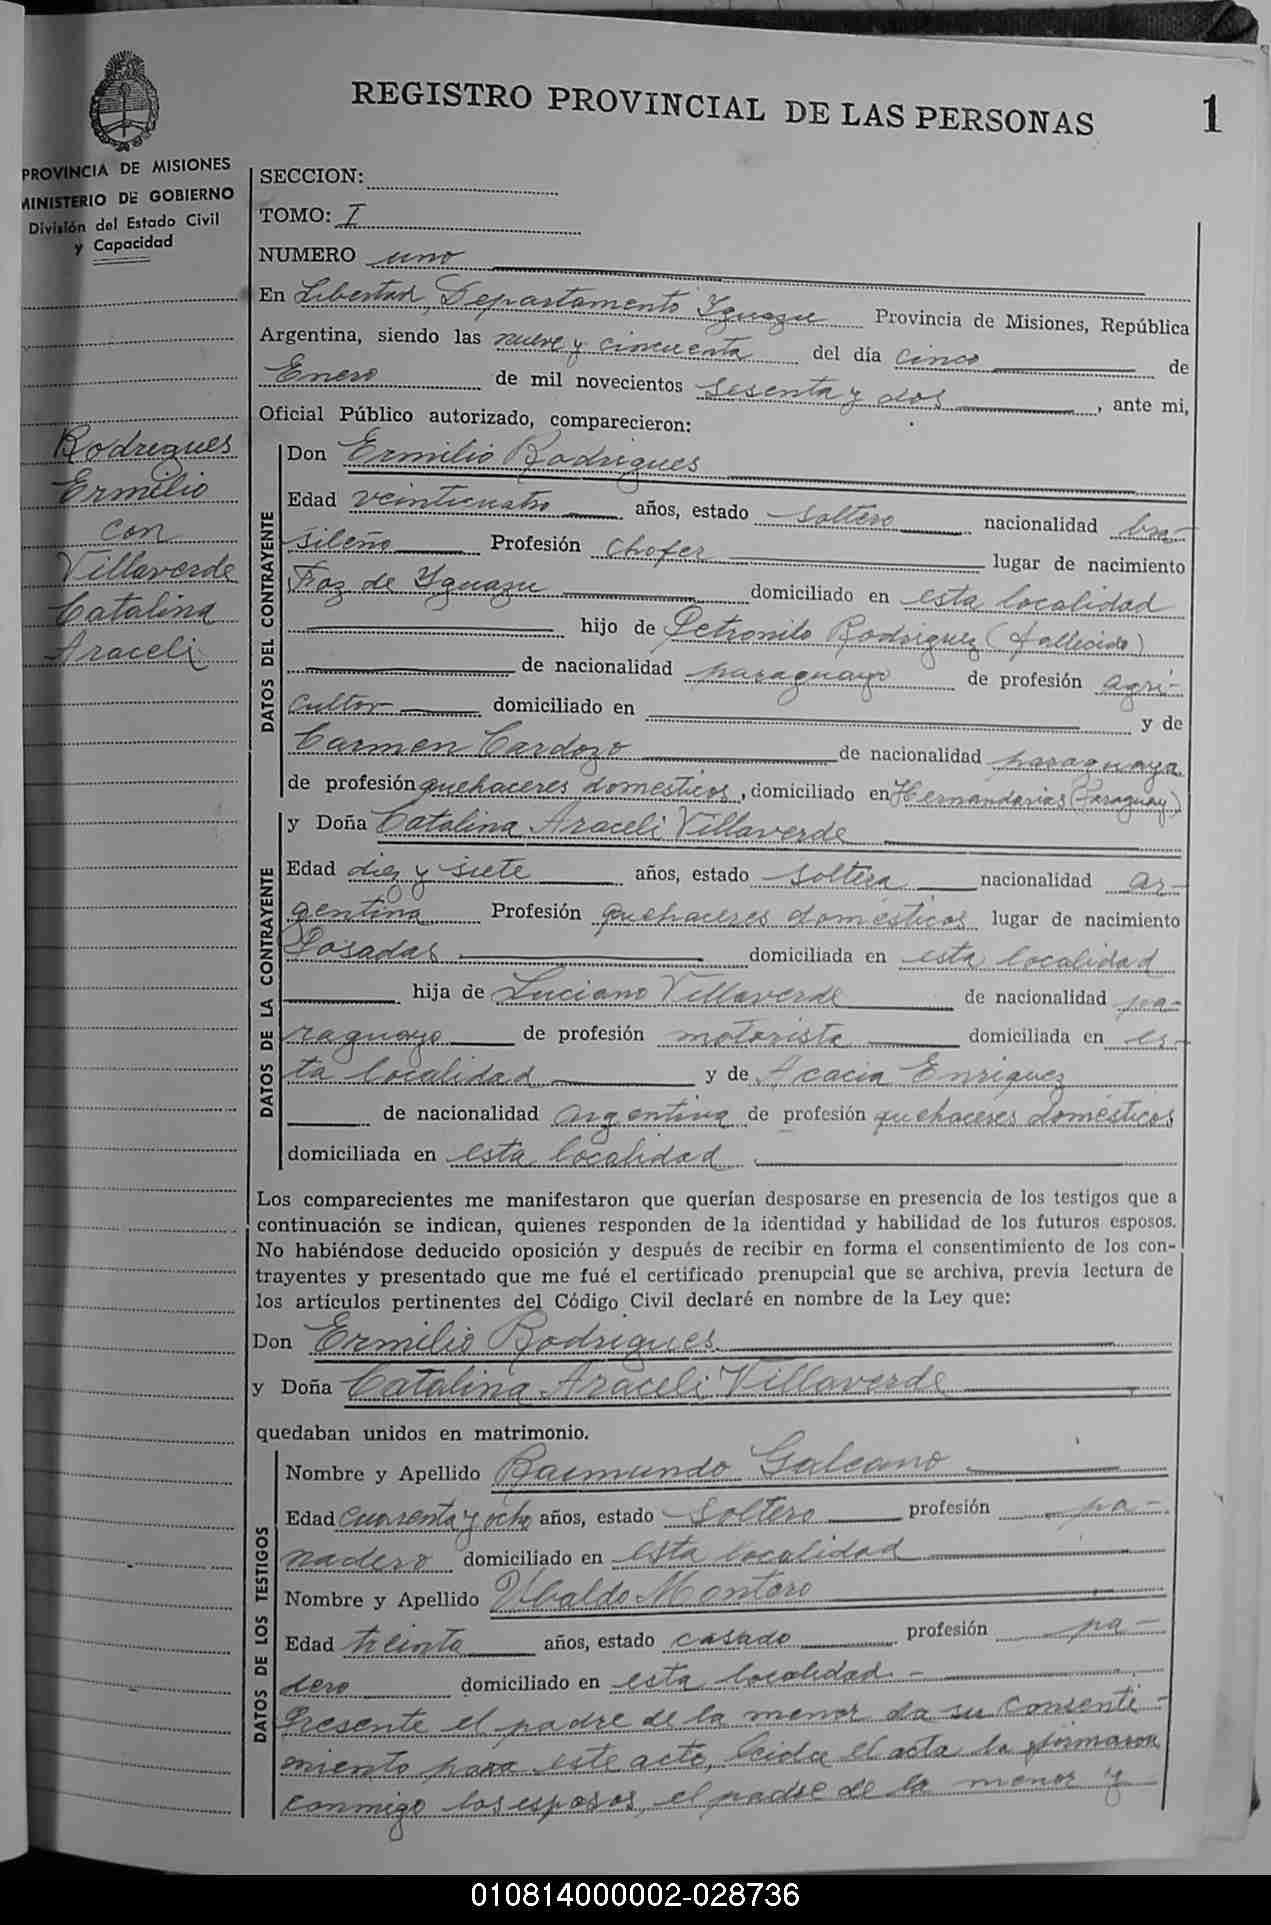 REGISTRO PROVINCIAL DE LAS PERSONAS
1
PROVINCIA DE MISIONES
MINISTERIO DE GOBIERNO
División del Estado Civil
y Capacidad
Rodrigues
Ermilio
con
Villaverde
Catalina
Araceli
SECCION:
TOMO: I
NUMERO uno
En Libertad, Departamento Iguazu Provincia de Misiones, República
Argentina, siendo las nueve y cincuenta del día cinco de
Enero de mil novecientos sesenta y dos, ante mi,
Oficial Público autorizado, comparecieron:
DATOS DEL CONTRAYENTE
Don Ermilio Rodrigues
Edad veinticuatro años, estado soltero nacionalidad bra-
sileño Profesión chofer lugar de nacimiento
Foz de Iguazu domiciliado en esta localidad
hijo de Petronilo Rodriguez (fallecido)
de nacionalidad paraguayo de profesión agri-
cultor domiciliado en y de
Carmen Cardozo de nacionalidad paraguaya
de profesión quehaceres domesticos, domiciliado en Hernandarias (Paraguay)
DATOS DE LA CONTRAYENTE
y Doña Catalina Araceli Villaverde
Edad diez y siete años, estado soltera nacionalidad ar-
gentina Profesión quehaceres domésticos lugar de nacimiento
Posadas domiciliada en esta localidad
hija de Luciano Villaverde de nacionalidad pa-
raguayo de profesión motorista domiciliada en es-
ta localidad y de Acacia Enriquez
de nacionalidad argentina de profesión quehaceres domésticos
domiciliada en esta localidad
Los comparecientes me manifestaron que querían desposarse en presencia de los testigos que a
continuación se indican, quienes responden de la identidad y habilidad de los futuros esposos.
No habiéndose deducido oposición y después de recibir en forma el consentimiento de los con-
trayentes y presentado que me fué el certificado prenupcial que se archiva, previa lectura de
los artículos pertinentes del Código Civil declaré en nombre de la Ley que:
Don Ermilio Rodrigues
y Doña Catalina Araceli Villaverde
quedaban unidos en matrimonio.
DATOS DE LOS TESTIGOS
Nombre y Apellido Raimundo Galeano
Edad cuarenta y ocho años, estado soltero profesión pa-
nadero domiciliado en esta localidad
Nombre y Apellido Ubaldo Montero
Edad treinta años, estado casado profesión pa-
dero domiciliado en esta localidad.-
Presente el padre de la menor da su consenti-
miento para este acto, leida el acta la firmaron
conmigo los esposos, el padre de la menor y
010814000002-028736